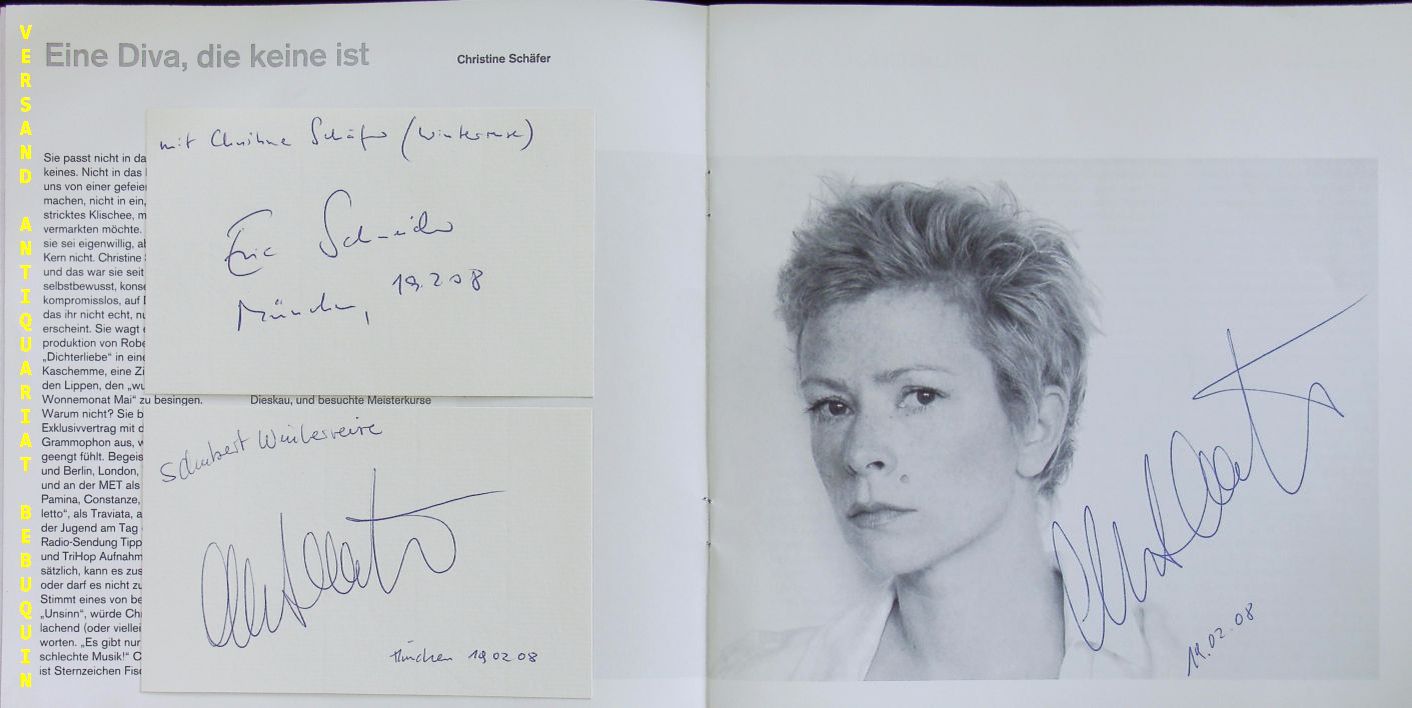 VERSAND ANTIQUARIAT BEBUQUIN
Eine Diva, die keine ist
Christine Schäfer
mit Christine Schäfer (Winterreise)
Eric Schneider
München, 19.2.08
Sie passt nicht in da
keines. Nicht in das
uns von einer gefeier
machen, nicht in ein,
stricktes Klischee, m
vermarkten möchte.
sie sei eigenwillig, al
Kern nicht. Christine
und das war sie seit
selbstbewusst, konse
kompromisslos, auf
das ihr nicht echt, nu
erscheint. Sie wagt
produktion von Robe
„Dichterliebe“ in eine
Kaschemme, eine Zi
den Lippen, den „wu
Wonnemonat Mai“ zu besingen.
Warum nicht? Sie b
Exklusivvertrag mit d
Grammophon aus, w
geengt fühlt. Begeis
und Berlin, London,
und an der MET als
Pamina, Constanze,
letto“, als Traviata, a
der Jugend am Tag
Radio-Sendung Tipp
und TriHop Aufnahm
sätzlich, kann es zus
oder darf es nicht zu
Stimmt eines von be
„Unsinn“, würde Chi
lachend (oder viellei
worten. „Es gibt nur
schlechte Musik!“ C
ist Sternzeichen Fisc
Dieskau, und besuchte Meisterkurse
Schubert Winterreise
München 19 02 08
19.02.08